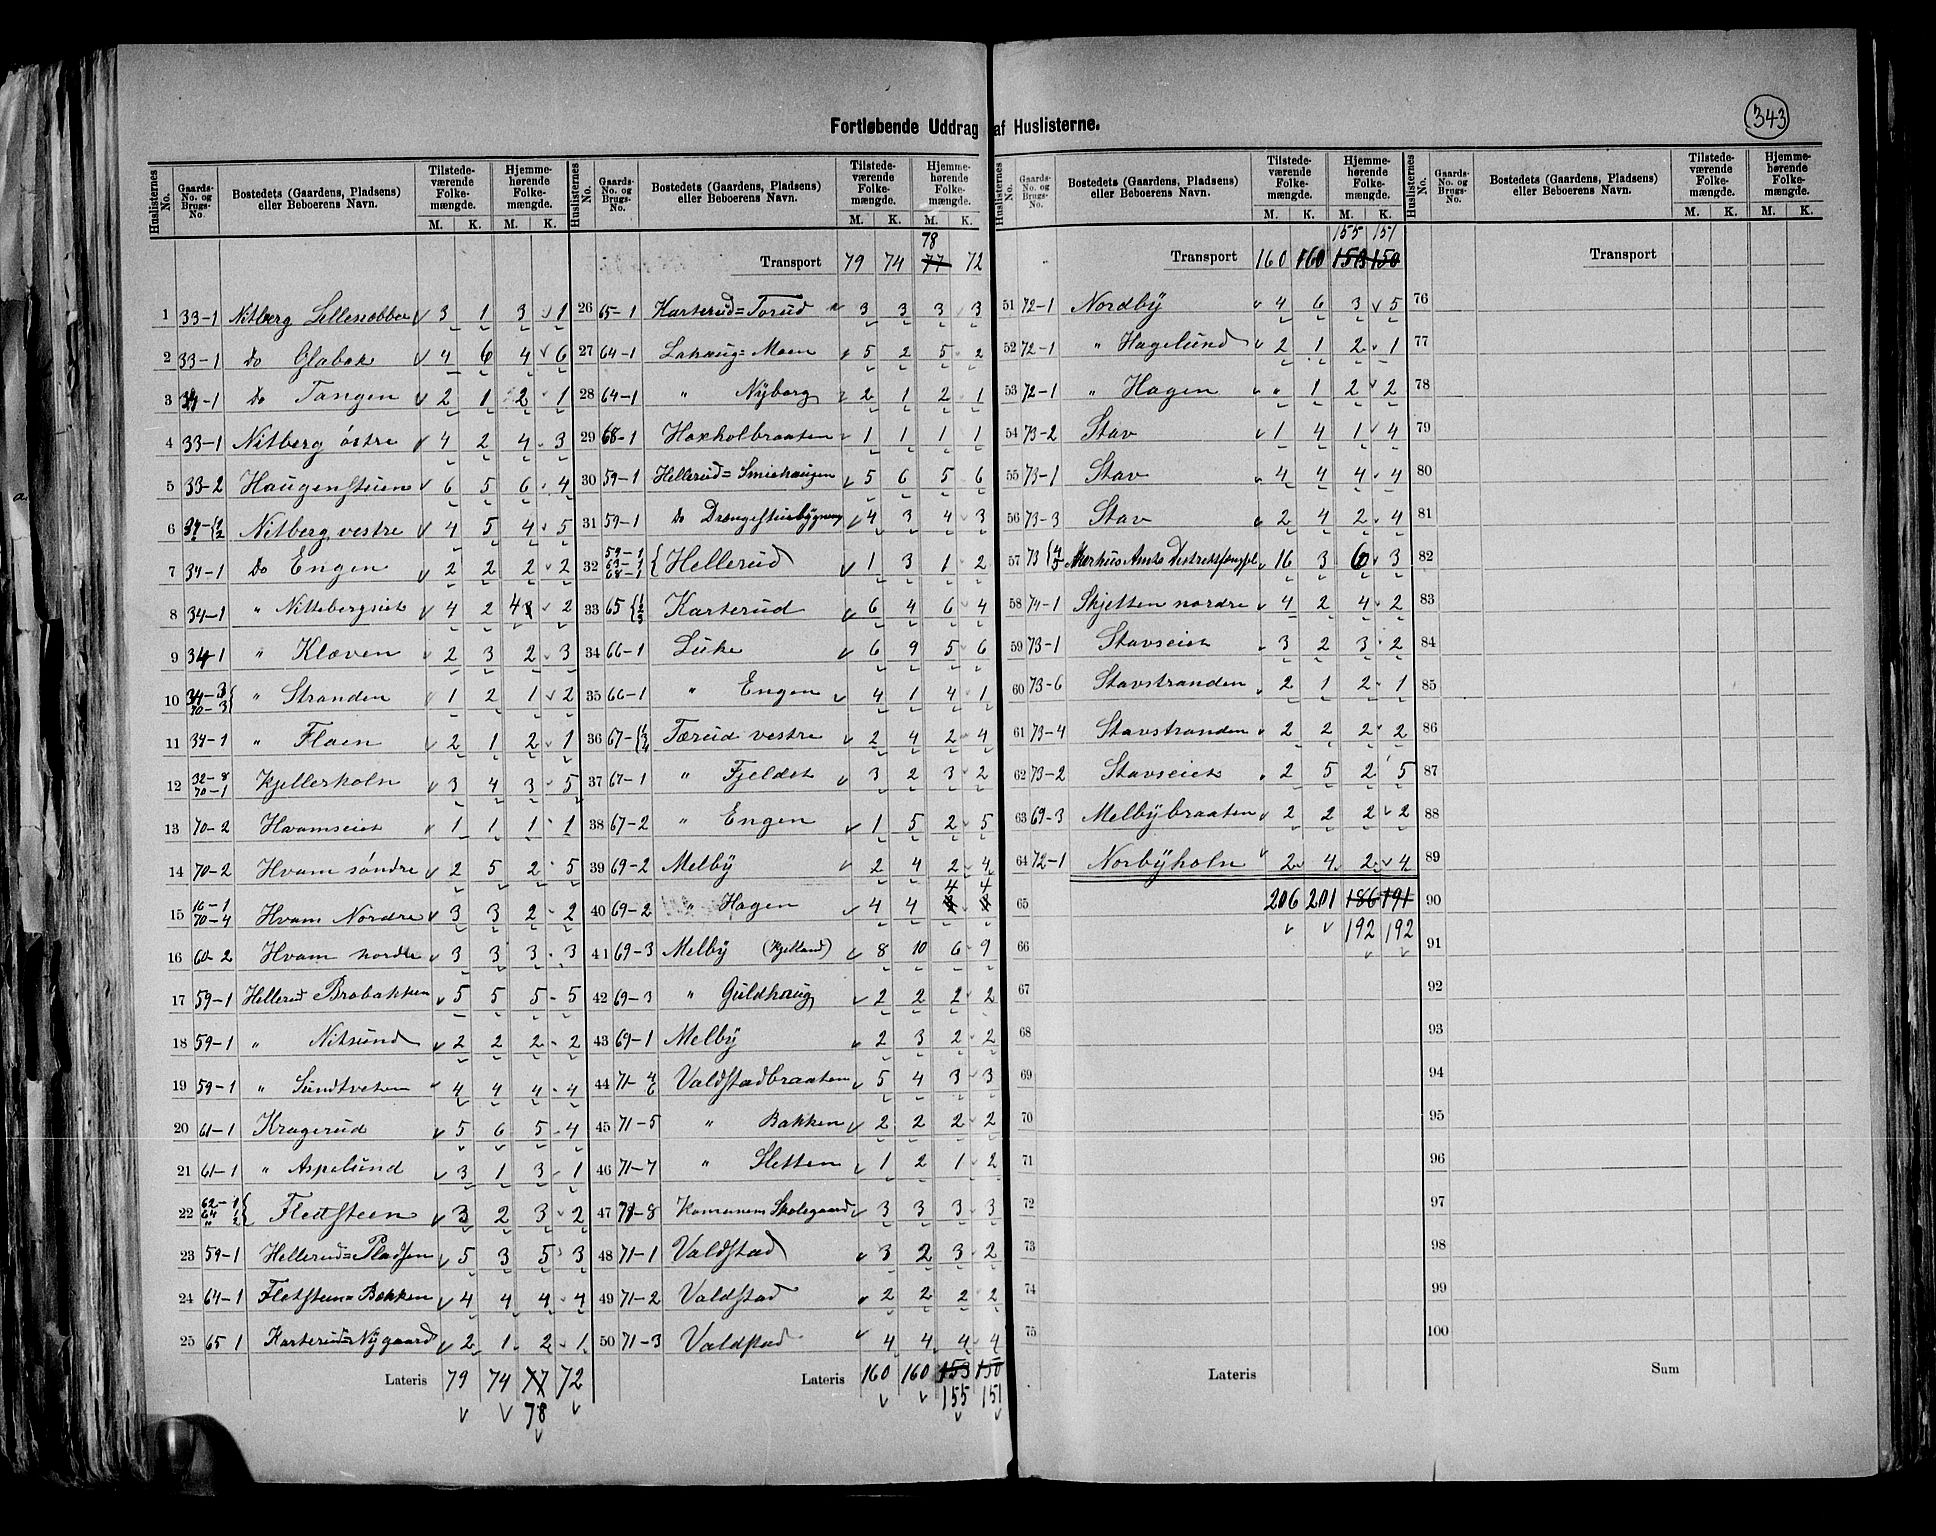 343
Fortløbende Uddrag af Huslisterne.
Huslisternes No. Gaards-No. og Brugs-No. Bostedets (Gaardens, Pladsens) eller Beboerens Navn. Tilstedeværende Folkemængde. M. K. Hjemmehørende Folkemængde. M. K.
1 33-1 Nitberg 3 1 3 1
2 33-1 Do Glabak 4 6 4 6
3 34-1 Do Tangen 2 1 2 1
4 33-1 Nitberg østre 4 2 4 3
5 33-2 Haugenstuen 6 5 6 4
6 34-{1 2 Nitberg vestre 4 5 4 5
7 34-1 Do Engen 2 2 2 2
8 34-1 " Nittebergseiet 4 2 4 2
9 34-1 " Klæven 2 3 2 3
10 34-3 70-3} " Stranden 1 2 1 2
11 34-1 " Flaen 2 1 2 1
12 32-8 70-1 Kjellerholn 3 4 3 5
13 70-2 Hvamseiet 1 1 1 1
14 70-2 Hvam søndre 2 5 2 5
15 16-1 70-4 Hvam Nordre 3 3 2 2
16 60-2 Hvam nordre 3 3 3 3
17 59-1 Hellerud Brobakken 5 5 5 5
18 59-1 " Nitsund 2 2 2 2
19 59-1 " Sundtveten 4 4 4 4
20 61-1 Kragerud 5 6 5 4
21 61-1 " Aspelund 3 1 3 1
22 62-1 64 1 " 2} Fletsteen 3 2 3 2
23 59-1 Hellerud=Pladsen 5 3 5 3
24 64-1 Fletsteen=Bakken 4 4 4 4
25 65 1 Karterud=Nygaard 2 1 2 1
Lateris 79 74 77 72
78
78
Transport 79 74 77 72
26 65-1 Karterud=Torud 3 3 3 3
27 64-1 Lahaug=Moen 5 2 5 2
28 64-1 " Nyborg 2 1 2 1
29 68-1 Haxholbraaten 1 1 1 1
30 59-1 Hellerud=Smiehaugen 5 6 5 6
31 59-1 Do Drengestuebygning 4 3 4 3
32 59-1 63-1 68-1 { Hellerud 1 3 1 2
33 65 {1 2 3 Karterud 6 4 6 4
34 66-1 Luke 6 9 5 6
35 66-1 " Engen 4 1 4 1
36 67-{1 3 4 Tærud vestre 2 4 2 4
37 67-1 " Fjeldet 3 2 3 2
38 67-2 " Engen 1 5 2 5
39 69-2 Melby 2 4 2 4
40 69-2 " Hagen 4 4 4 4
41 69-3 Melby (Kjelland) 8 10 6 9
42 69-3 " Guldhaug 2 2 2 2
43 69-1 Melby 2 3 2 2
44 71-4 6 Valdstadbraaten 5 4 3 3
45 71-5 " Bakken 2 2 2 2
46 71-7 " Sletten 1 2 1 2
47 71-8 Komunens Skolegaard 3 3 3 3
48 71-1 Valdstad 3 2 3 2
49 71-2 Valdstad 2 2 2 2
50 71-3 Valdstad 4 4 4 4
Lateris 160 160 153 150
155 151
155 151
Transport 160 160 153 150
51 72-1 Nordby 4 6 3 5
52 72-1 " Hagelund 2 1 2 1
53 72-1 " Hagen " 1 2 2
54 73-2 Stav 1 4 1 4
55 73-1 Stav 4 4 4 4
56 73-3 Stav 2 4 2 4
57 73 {4 5 Akerhus Amts 16 3 6 3
58 74-1 Skjetten nordre 4 2 4 2
59 73-1 Stavseiet 3 2 3 2
60 73-6 Stavstranden 2 1 2 1
61 73-4 Stavstranden 2 2 2 2
62 73-2 Stavseiet 2 5 2 5
63 69-3 Melbybraaten 2 2 2 2
64 72-1 Norbyholn 2 4 2 4
65 206 201 186 191
66 192 192
67
68
69
70
71
72
73
74
75
Lateris
Transport
76
77
78
79
80
81
82
83
84
85
86
87
88
89
90
91
92
93
94
95
96
97
98
99
100
Sum